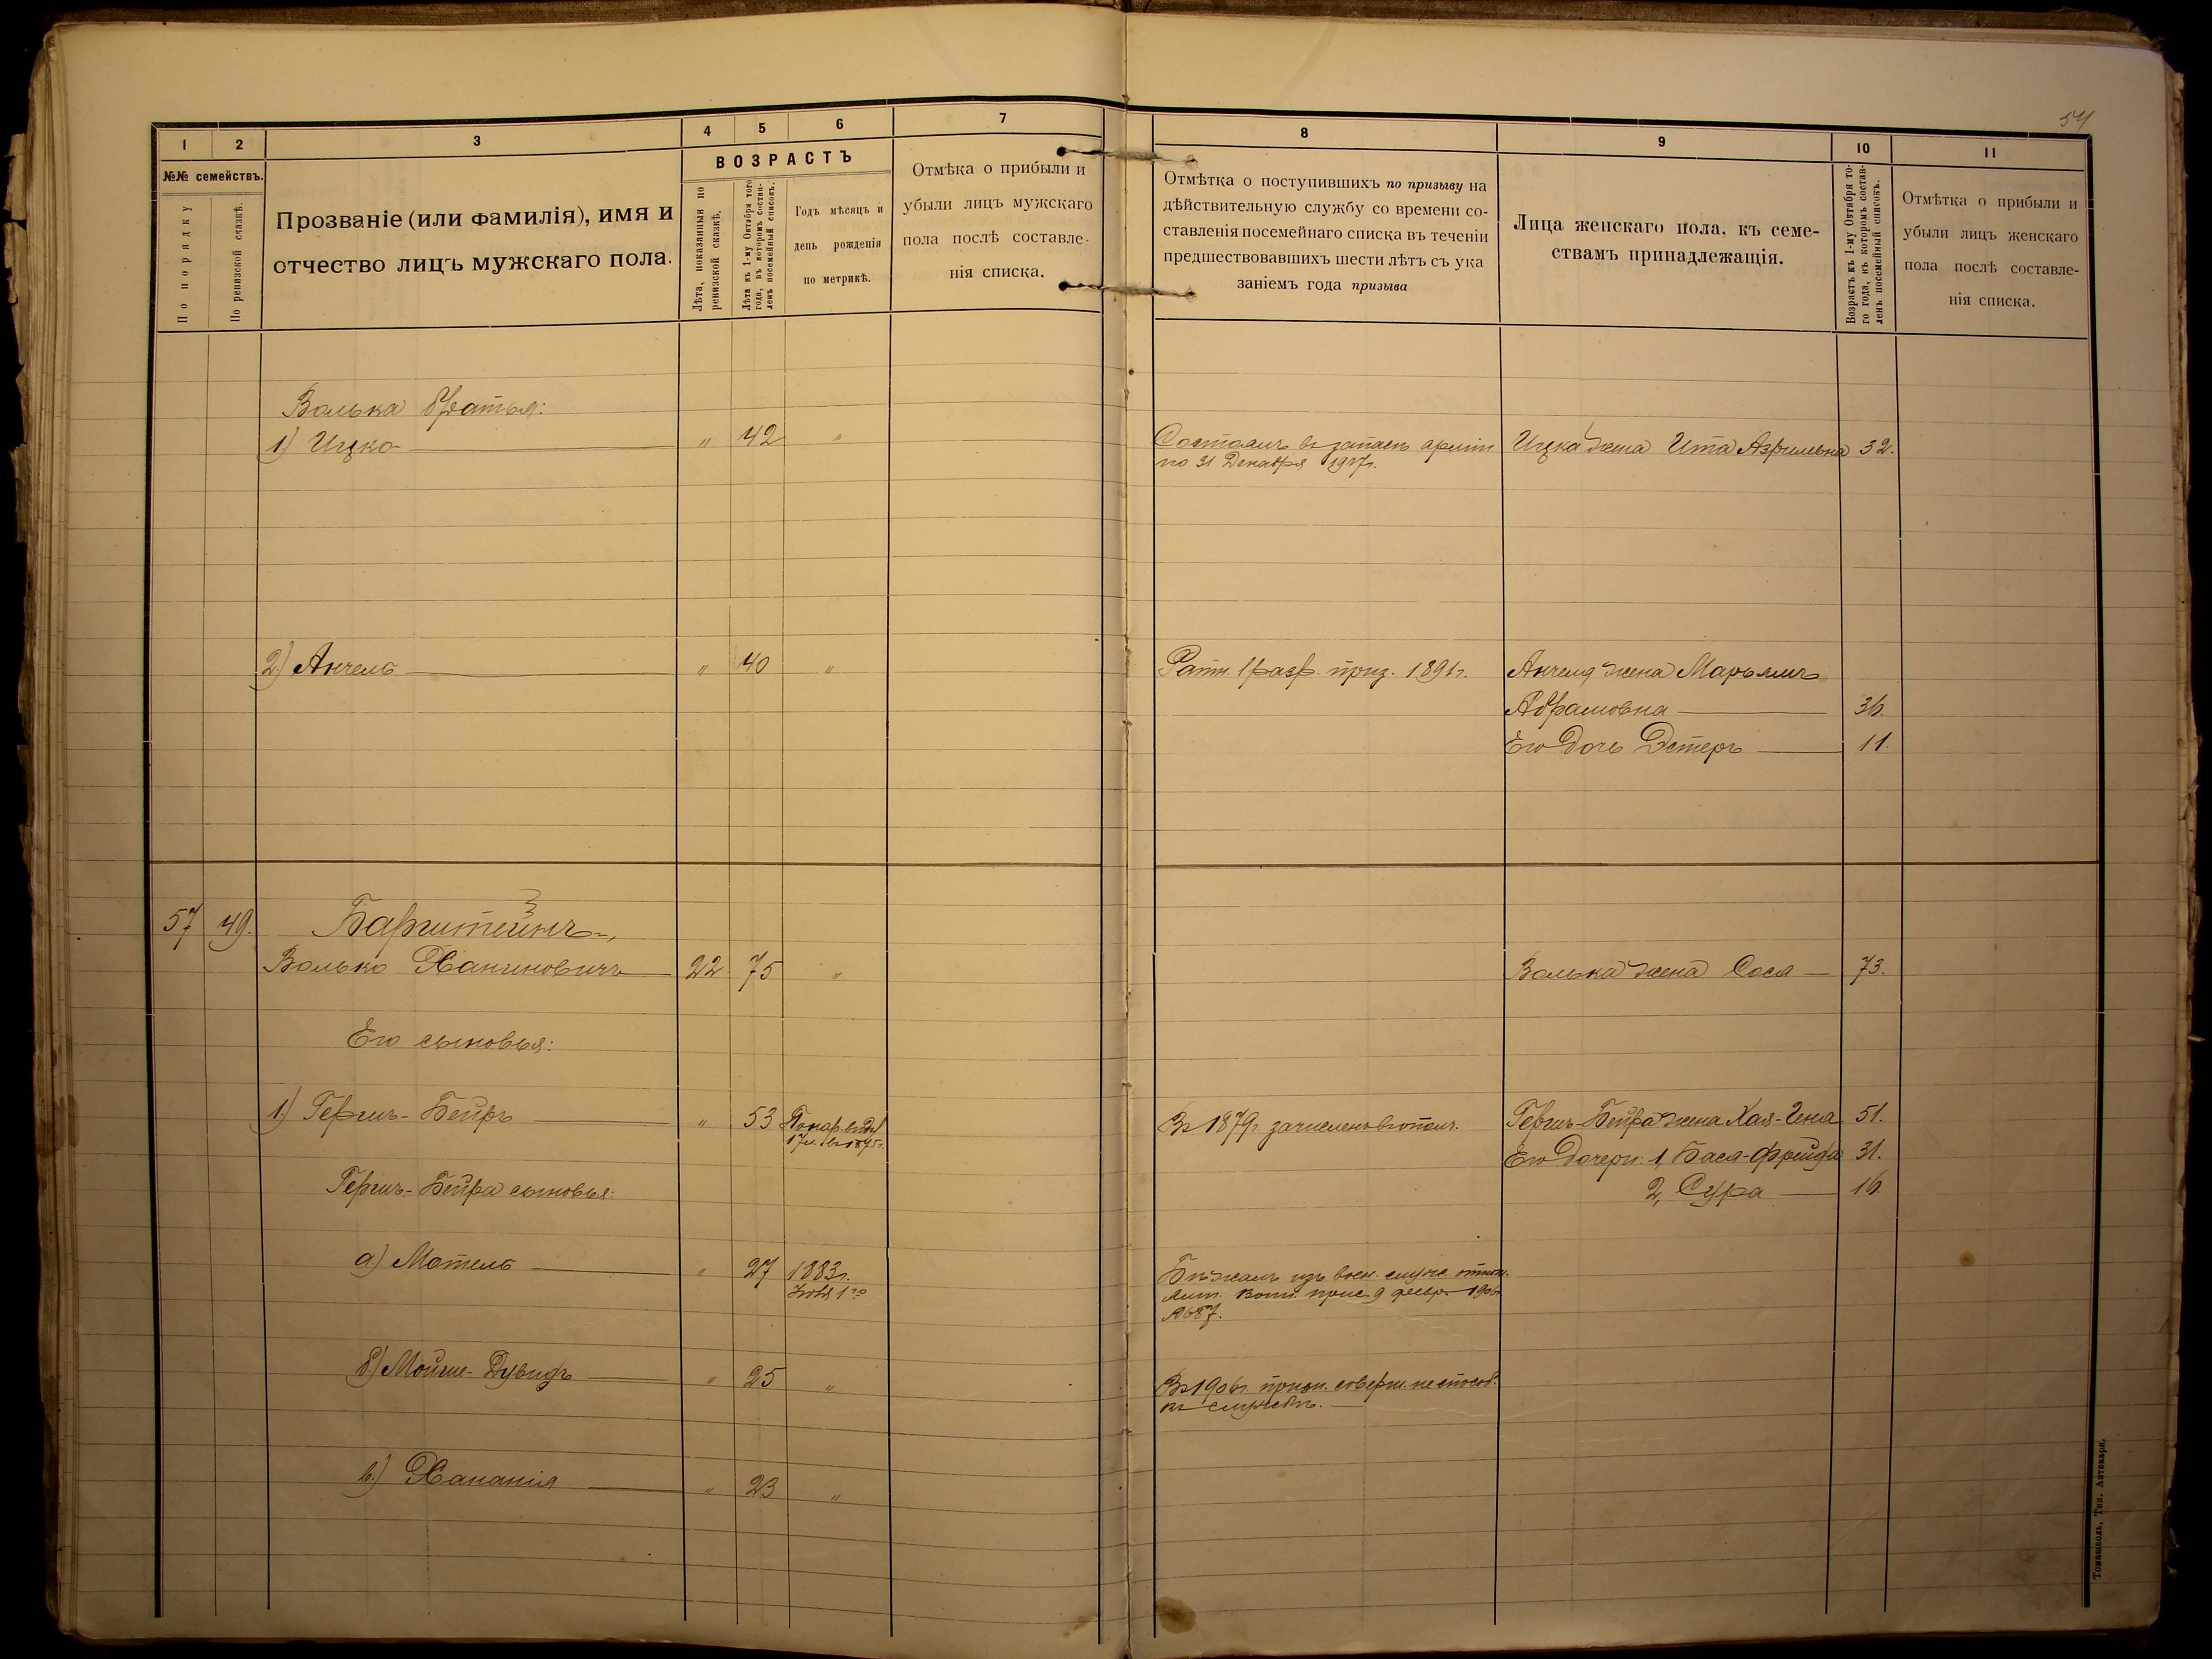 54
1 2 3 4 5 6 7
№№ семействъ.
По порядку
По ревизской сказкѣ.
Прозваніе (или фамилія), имя и
отчество лицъ мужскаго пола.
ВОЗРАСТЪ
Лѣта, показанныя по
ревизской сказкѣ.
Лѣта къ 1-му Октября того
года, въ которомъ состав-
ленъ посемейный списокъ.
Годъ мѣсяцъ и
день рожденія
по метрикѣ.
Отмѣка о прибыли и
убыли лицъ мужскаго
пола послѣ составле-
нія списка.
8 9 10 11
Отмѣтка о поступившихъ по призыву на
дѣйствительную службу со времени со-
ставленія посемейнаго списка въ теченіи
предшествовавшихъ шести лѣтъ съ ука
заніемъ года призыва
Лица женскаго пола, къ семе-
ствамъ принадлежащія.
Возрастъ къ 1-му Октября то-
го года, въ которомъ состав-
ленъ посемейный списокъ.
Отмѣтка о прибыли и
убыли лицъ женскаго
пола послѣ составле-
нія списка.
Волька братья:
1) Ицко " 42 "
Состоялъ въ запасѣ арміи
по 31 Декабря 1907г.
Ицка жена Ита Азрильвна 32.
2.) Анчель " 40 "
Ратн. 1 разр. приз. 1891г.
Анчеля жена Марьямъ
Абрамовна 36.
Его дочь Эстеръ 11.
57 49. Барштейнъ,
Волько Ханиновичъ 22 75 "
Волька жена Сося 73.
Его сыновья:
1.) Гершъ-Бейръ " 53
17 л. въ 1875г.
Въ 1879г. зачисленъ въ ополч.
Гершъ-Бейра жена Хая-Геня 51.
Его дочери: 1, Бася-Фрейда 31.
2, Сура 16.
Гершъ-Бейра сыновья:
а.) Мотель " 27 1883г.
1го
Бѣжалъ изъ воен. служб. отнош.
Лит. Воин. прис. 9 февр. 1906
№ 687.
б.) Мойше-Дувидъ " 25 "
Въ 1906г. призн. соверш. неспособ.
къ службѣ.
в.) Хананія " 23 "
Томашполь, Тип. Аптекаря.